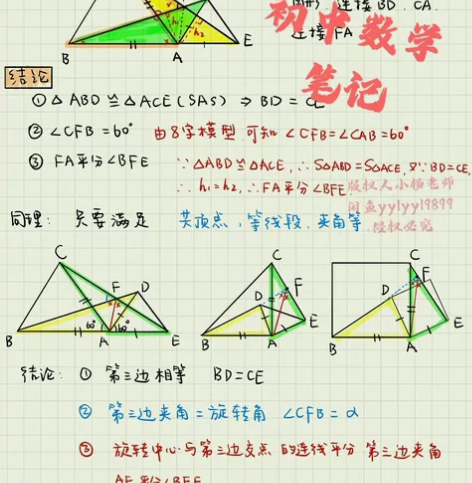 图形, 连接 BD. CA.
连接 FA
初中数学
笔记
B A E
h₂
结论
① △ABD ≌ △ACE (SAS) ⇒ BD = CE
② ∠CFB = 60° 由8字模型可知 ∠CFB=∠CAB=60°
③ FA平分∠BFE ∵△ABD≌△ACE, ∴S△ABD=S△ACE, 又∵BD=CE,
∴h₁=h₂, ∴FA平分∠BFE
版权人小杨老师
闲鱼yylyyl9899
侵权必究
同理: 只要满足 共顶点, 等线段, 夹角等.
C F D B 60° 60° A E
C F D E B A
C F D E B A
结论: ① 第三边相等 BD=CE
② 第三边夹角=旋转角 ∠CFB = α
③ 旋转中心与第三边交点的连线平分第三边夹角
AF平分∠BFE